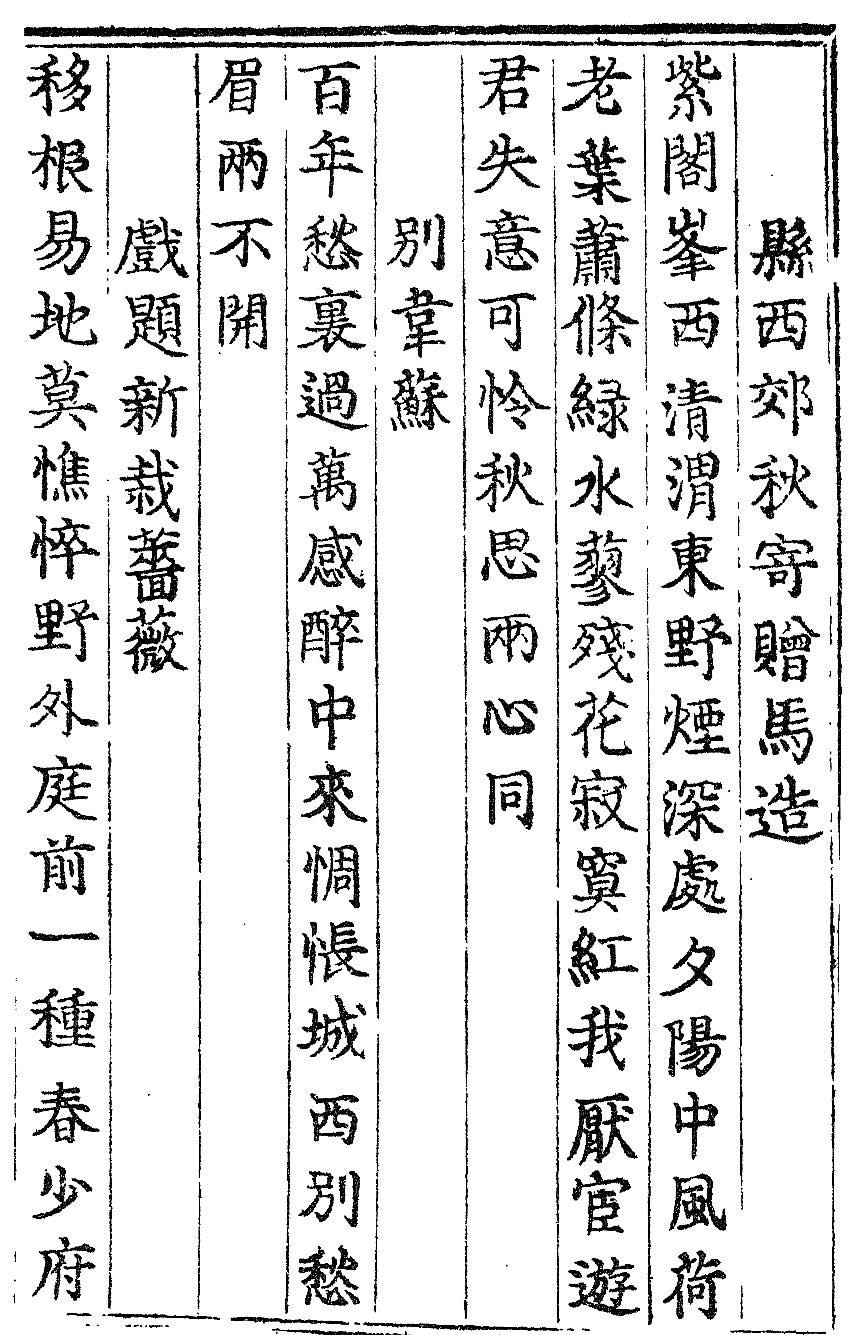 縣西郊秋寄贈馬造
紫閣峯西清渭東野煙深處夕陽中風荷
老葉蕭條緑水蓼殘花寂寞紅我厭宦遊
君失意可怜秋思兩心同
別韋蘇
百年愁裏過萬感醉中來惆悵城西別愁
眉兩不開
戲題新栽薔薇
移根易地莫憔悴野外庭前一種春少府